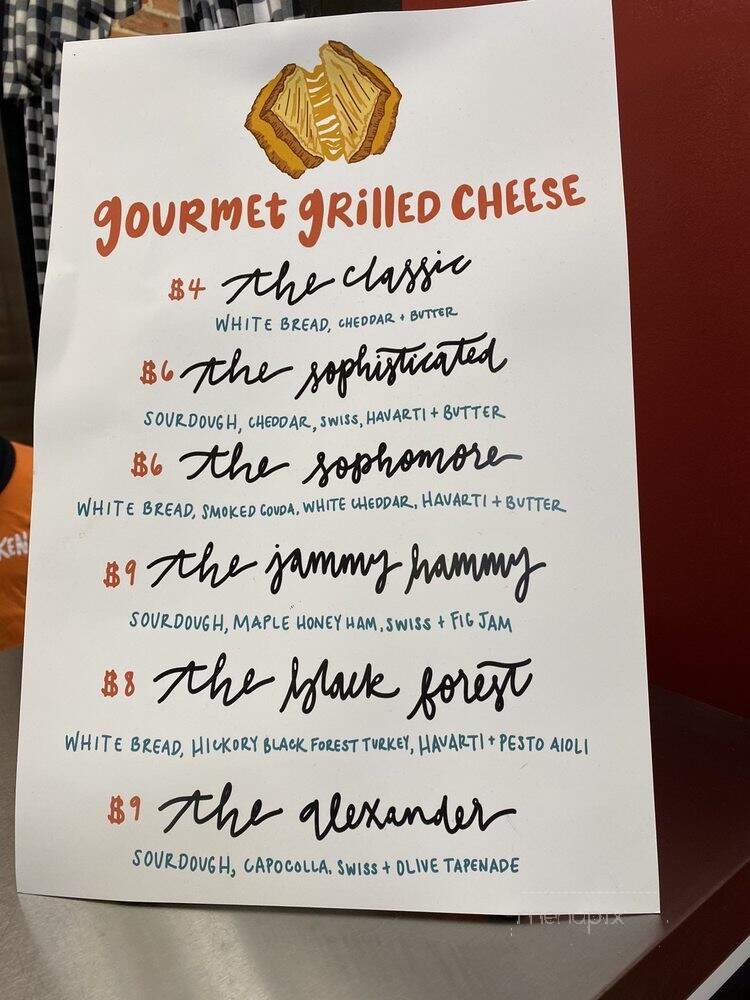 gourmet grilled CHEESE
$4 the classic
WHITE BREAD, CHEDDAR + BUTTER
$6 the sophisticated
SOURDOUGH, CHEDDAR, SWISS, HAVARTI + BUTTER
$6 the sophomore
WHITE BREAD, SMOKED GOUDA, WHITE CHEDDAR, HAVARTI + BUTTER
$9 the jammy hammy
SOURDOUGH, MAPLE HONEY HAM, SWISS + FIG JAM
$8 the black forest
WHITE BREAD, HICKORY BLACK FOREST TURKEY, HAVARTI + PESTO AIOLI
$9 the alexander
SOURDOUGH, CAPOCOLLA, SWISS + OLIVE TAPENADE
menupix